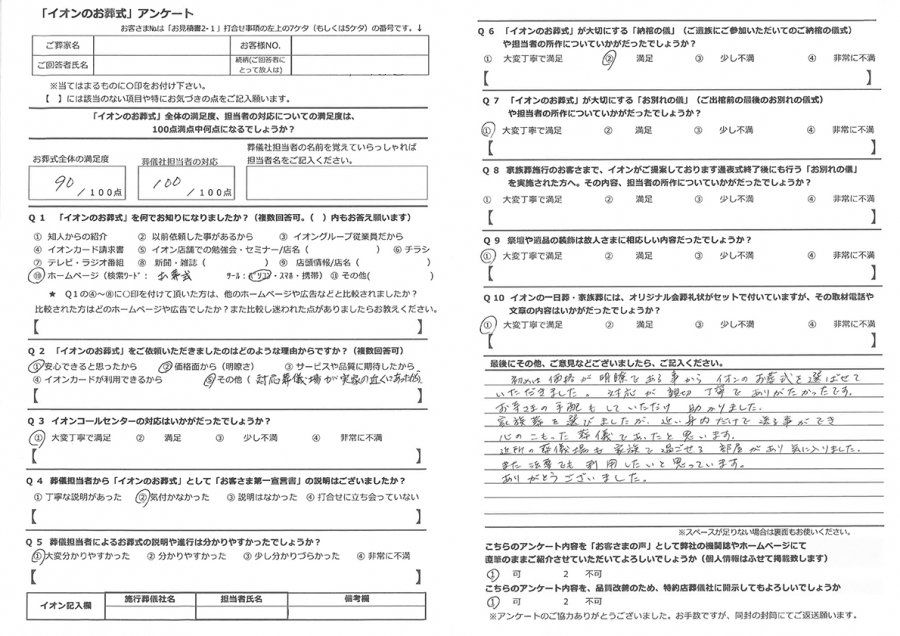 「イオンのお葬式」アンケート
お客さまNo.は「お見積書2-1」打合せ事項の左上の7ケタ（もしくは5ケタ）の番号です。↓
ご葬家名 お客様NO.
ご回答者氏名 続柄(ご回答者にとって故人は)
※当てはまるものに○印をお付け下さい。
【　】には該当のない項目や特にお気づきの点をご記入願います。
「イオンのお葬式」全体の満足度、担当者の対応についての満足度は、
100点満点中何点になるでしょうか？
お葬式全体の満足度 葬儀社担当者の対応 葬儀社担当者の名前を覚えていらっしゃれば
担当者名をご記入ください。
90 /100点 100 /100点
Q1 「イオンのお葬式」を何でお知りになりましたか？（複数回答可。(　)内もお答え願います）
① 知人からの紹介 ② 以前依頼した事があるから ③ イオングループ従業員だから
④ イオンカード請求書 ⑤ イオン店舗での勉強会・セミナー/店名（　） ⑥ チラシ
⑦ テレビ・ラジオ番組 ⑧ 新聞・雑誌（　） ⑨ 店頭情報/店名（　）
⑩ ホームページ（検索ワード： お葬式 ツール：パソコン・スマホ・携帯） ⑪ その他(　)
★ Q1の④～⑧に○印を付けて頂いた方は、他のホームページや広告などと比較されましたか？
比較された方はどのホームページや広告でしたか？また比較し迷われた点がありましたらお教えください。
【　】
Q2 「イオンのお葬式」をご依頼いただきましたのはどのような理由からですか？（複数回答可）
①安心できると思ったから ②価格面から（明瞭さ） ③ サービスや品質に期待したから
④ イオンカードが利用できるから ⑤その他（対応葬儀場が実家の近くにあったから）
Q3 イオンコールセンターの対応はいかがだったでしょうか？
① 大変丁寧で満足 ② 満足 ③ 少し不満 ④ 非常に不満
【　】
Q4 葬儀担当者から「イオンのお葬式」として「お客さま第一宣言書」の説明はございましたか？
① 丁寧な説明があった ②気付かなかった ③ 説明はなかった ④ 打合せに立ち会っていない
【　】
Q5 葬儀担当者によるお葬式の説明や進行は分かりやすかったでしょうか？
①大変分かりやすかった ② 分かりやすかった ③ 少し分かりづらかった ④ 非常に不満
【　】
イオン記入欄 施行葬儀社名 担当者氏名 備考欄
Q6 「イオンのお葬式」が大切にする「納棺の儀」（ご遺族にご参加いただいてのご納棺の儀式）
や担当者の所作についていかがだったでしょうか？
① 大変丁寧で満足 ② 満足 ③ 少し不満 ④ 非常に不満
【　】
Q7 「イオンのお葬式」が大切にする「お別れの儀」（ご出棺前の最後のお別れの儀式）
や担当者の所作についていかがだったでしょうか？
① 大変丁寧で満足 ② 満足 ③ 少し不満 ④ 非常に不満
【　】
Q8 家族葬施行のお客さまで、イオンがご提案しております通夜式終了後にも行う「お別れの儀」
を実施された方へ。その内容、担当者の所作についていかがだったでしょうか？
① 大変丁寧で満足 ② 満足 ③ 少し不満 ④ 非常に不満
【　】
Q9 祭壇や遺品の装飾は故人さまに相応しい内容だったでしょうか？
① 大変丁寧で満足 ② 満足 ③ 少し不満 ④ 非常に不満
【　】
Q10 イオンの一日葬・家族葬には、オリジナル会葬礼状がセットで付いていますが、その取材電話や
文章の内容はいかがだったでしょうか？
① 大変丁寧で満足 ② 満足 ③ 少し不満 ④ 非常に不満
【　】
最後にその他、ご意見などございましたら、ご記入ください。
初めは価格が明瞭である事からイオンのお葬式を選ばせて
いただきました。対応が親切丁寧でありがたかったです。
お寺さまの手配もしていただけ助かりました。
家族葬を選びましたが、近い身内だけで送る事ができ
心のこもった葬儀であったと思います。
近所の葬儀場も家族で過ごせる部屋があり気に入りました。
また法事でも利用したいと思っています。
ありがとうございました。
※スペースが足りない場合は裏面もお使いください。
こちらのアンケート内容を「お客さまの声」として弊社の機関誌やホームページにて
直筆のままご紹介させていただいてよろしいでしょうか（個人情報はふせて掲載致します）
1 可 2 不可
こちらのアンケート内容を、品質改善のため、特約店葬儀社に開示してもよろしいでしょうか
1 可 2 不可
※アンケートのご協力ありがとうございました。お手数ですが、同封の封筒にてご返送願います。